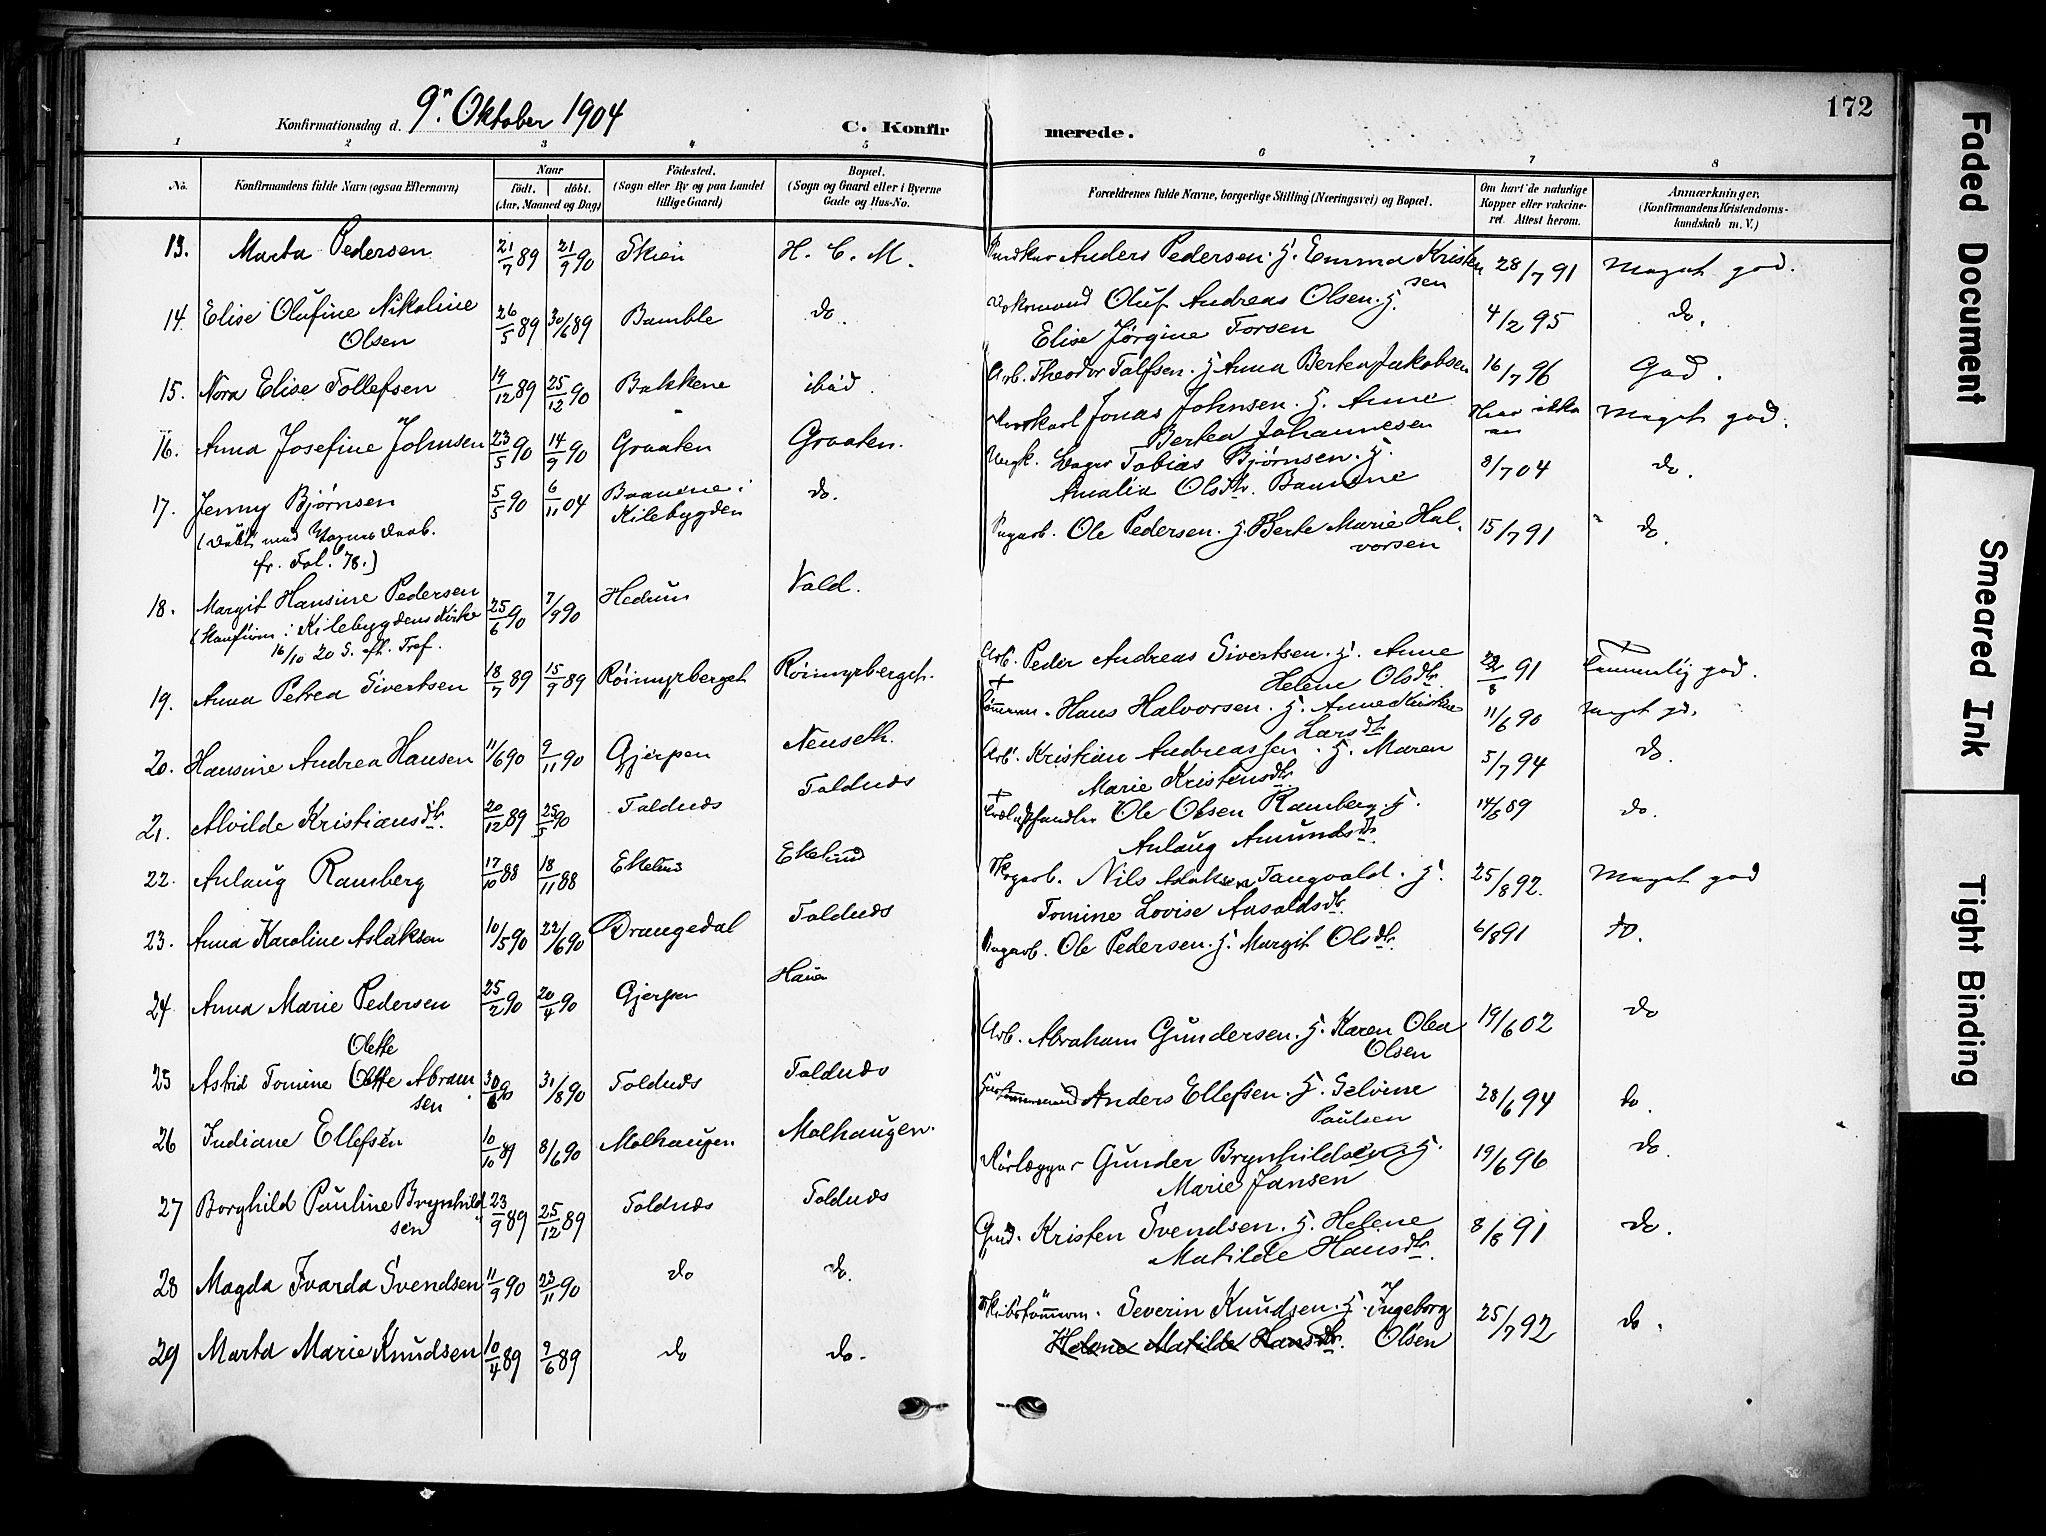 Konfirmationsdag d. 9. Oktober 1904
C. Konfir merede.
172
1 2 3 4 5 6 7 8
No.
Konfirmandens fulde Navn (ogsaa Efternavn)
Naar
födt. döbt.
(Aar, Maaned og Dag)
Födested.
(Sogn eller By og paa Landet
tillige Gaard)
Bopæl.
(Sogn og Gaard eller i Byerne
Gade og Hus-No.
Forældrenes fulde Navne, borgerlige Stilling (Næringsvei) og Bopæl.
Om havt de naturlige
Kopper eller vakcine-
ret. Attest herom.
Anmærkninger,
(Konfirmandens Kristendoms-
kundskab m. V.)
13. Marta Pedersen 21/7 89 21/9 90 Skien H. C. M. Anders Pedersen. H. Emma Kristen
sen 28/7 91 Meget god.
14. Elise Olufine Nikoline
Olsen 26/5 89 30/6 89 Bamble do. Oluf Andreas Olsen. H.
Elise Jørgine Torsen 4/2 95 do.
15. Nora Elise Tollefsen 19/12 89 25/12 90 Bakkene ibid. Arb. Theodor Tolfsen. H. Anna Bertea Jakobsen 16/7 96 God.
16. Anna Josefine Johnsen 23/5 90 14/9 90 Graaten Graaten. Jonas Johnsen. H. Anne
Bertea Johannesen Har ikke Meget god.
17. Jenny Bjørnsen 5/5 90 6/11 04 Baanene i
Kilebygden do. Ungk. Tobias Bjørnsen. H.
Amalia Olsdtr. Baanene 8/7 04 do.
(Døbt med
fr. Fol. 78.)
18. Margit Hansine Pedersen 25/6 90 7/9 90 Hedrum Vold. Ole Pedersen. H. Berte Marie Hal-
vorsen 15/7 91 do.
(Konfirm. i Kilebygdens Kirke
16/10 20 S. eft. Tref.
19. Anna Petrea Sivertsen 18/7 89 15/9 89 Röimyrberget Röimyrberget. Arb. Peder Andreas Sivertsen. H. Anne
Helene Olsdtr. 91 Temmelig god.
20. Hansine Andrea Hansen 11/6 90 9/11 90 Gjerpen Nenseth. Hans Halvorsen. H. Anne Kirstine
Larsdtr. 11/6 90 Meget gd.
21. Alvilde Kristiansdtr. 20/12 89 25/5 90 Foldnes Foldnes Arb. Kristian Andreassen. H. Maren
Marie Kristensdtr. 5/7 94 do.
22. Anlaug Ramberg 17/10 88 18/11 88 Ekelund Ekelund Ole Olsen Ramberg. H.
Anlaug Amundsdtr. 14/6 89 do.
23. Anna Karoline Aslaksen 10/5 90 22/6 90 Drangedal Foldnes Nils Aslaksen Tangvald. H.
Tomine Lovise Aasoldsdtr. 25/8 92. Meget god
24 Anna Marie Pedersen 25/2 90 20/4 90 Gjerpen Ole Pedersen. H. Margit Olsdtr. 6/8 91 do.
Olette
25 Astrid Tomine Abram
sen 31/8 90 Foldnes Foldnes Arb. Abraham Gundersen. H. Karen Olea
Olsen 19/6 02 do
26 Indiane Ellefsen 10/10 89 8/6 90 Molhaugen Molhaugen. Anders Ellefsen. H. Selvine
Paulsen 28/6 94 do.
27 Borghild Pauline Brynhild
sen 23/9 89 25/12 89 Foldnes Foldnes Rörlægger Gunder Brynhildsen. H.
Marie Jansen 19/6 96 do.
28 Magda Ivarda Svendsen 11/9 90 23/11 90 do do. Kristen Svendsen. H. Helene
Matilde Hansdtr. 8/8 91 do.
29 Marta Marie Knudsen 10/4 89 9/6 89 do do. Skibstömerm. Severin Knudsen. H. Ingeborg
Helene Matilde Hansdtr. Olsen 25/7 92 do.
Faded Document
Smeared Ink
Tight Binding